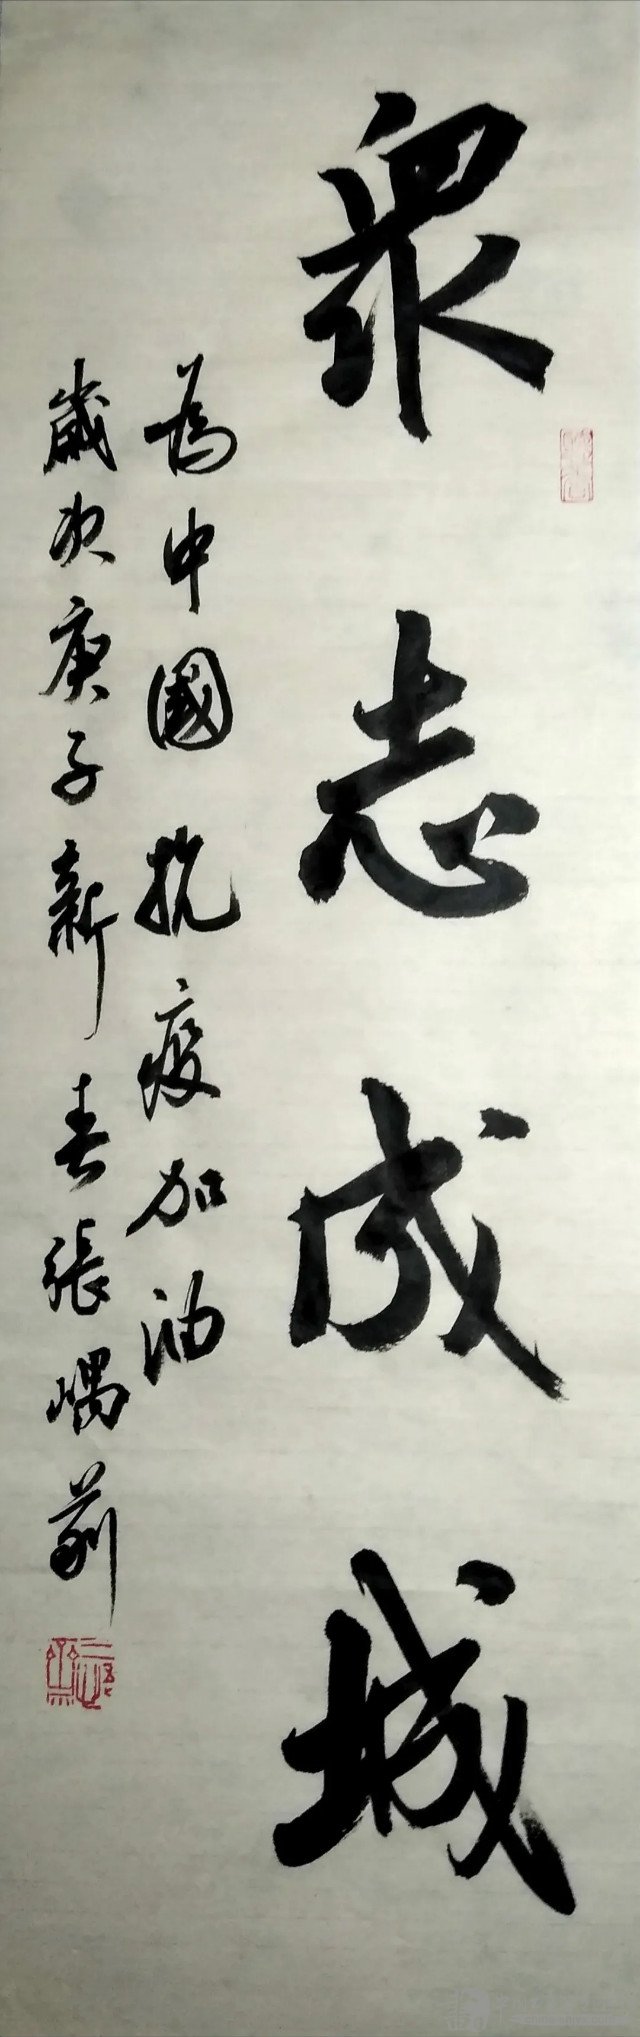 眾志成城
為中國抗疫加油
歲次庚子新春張嵎前